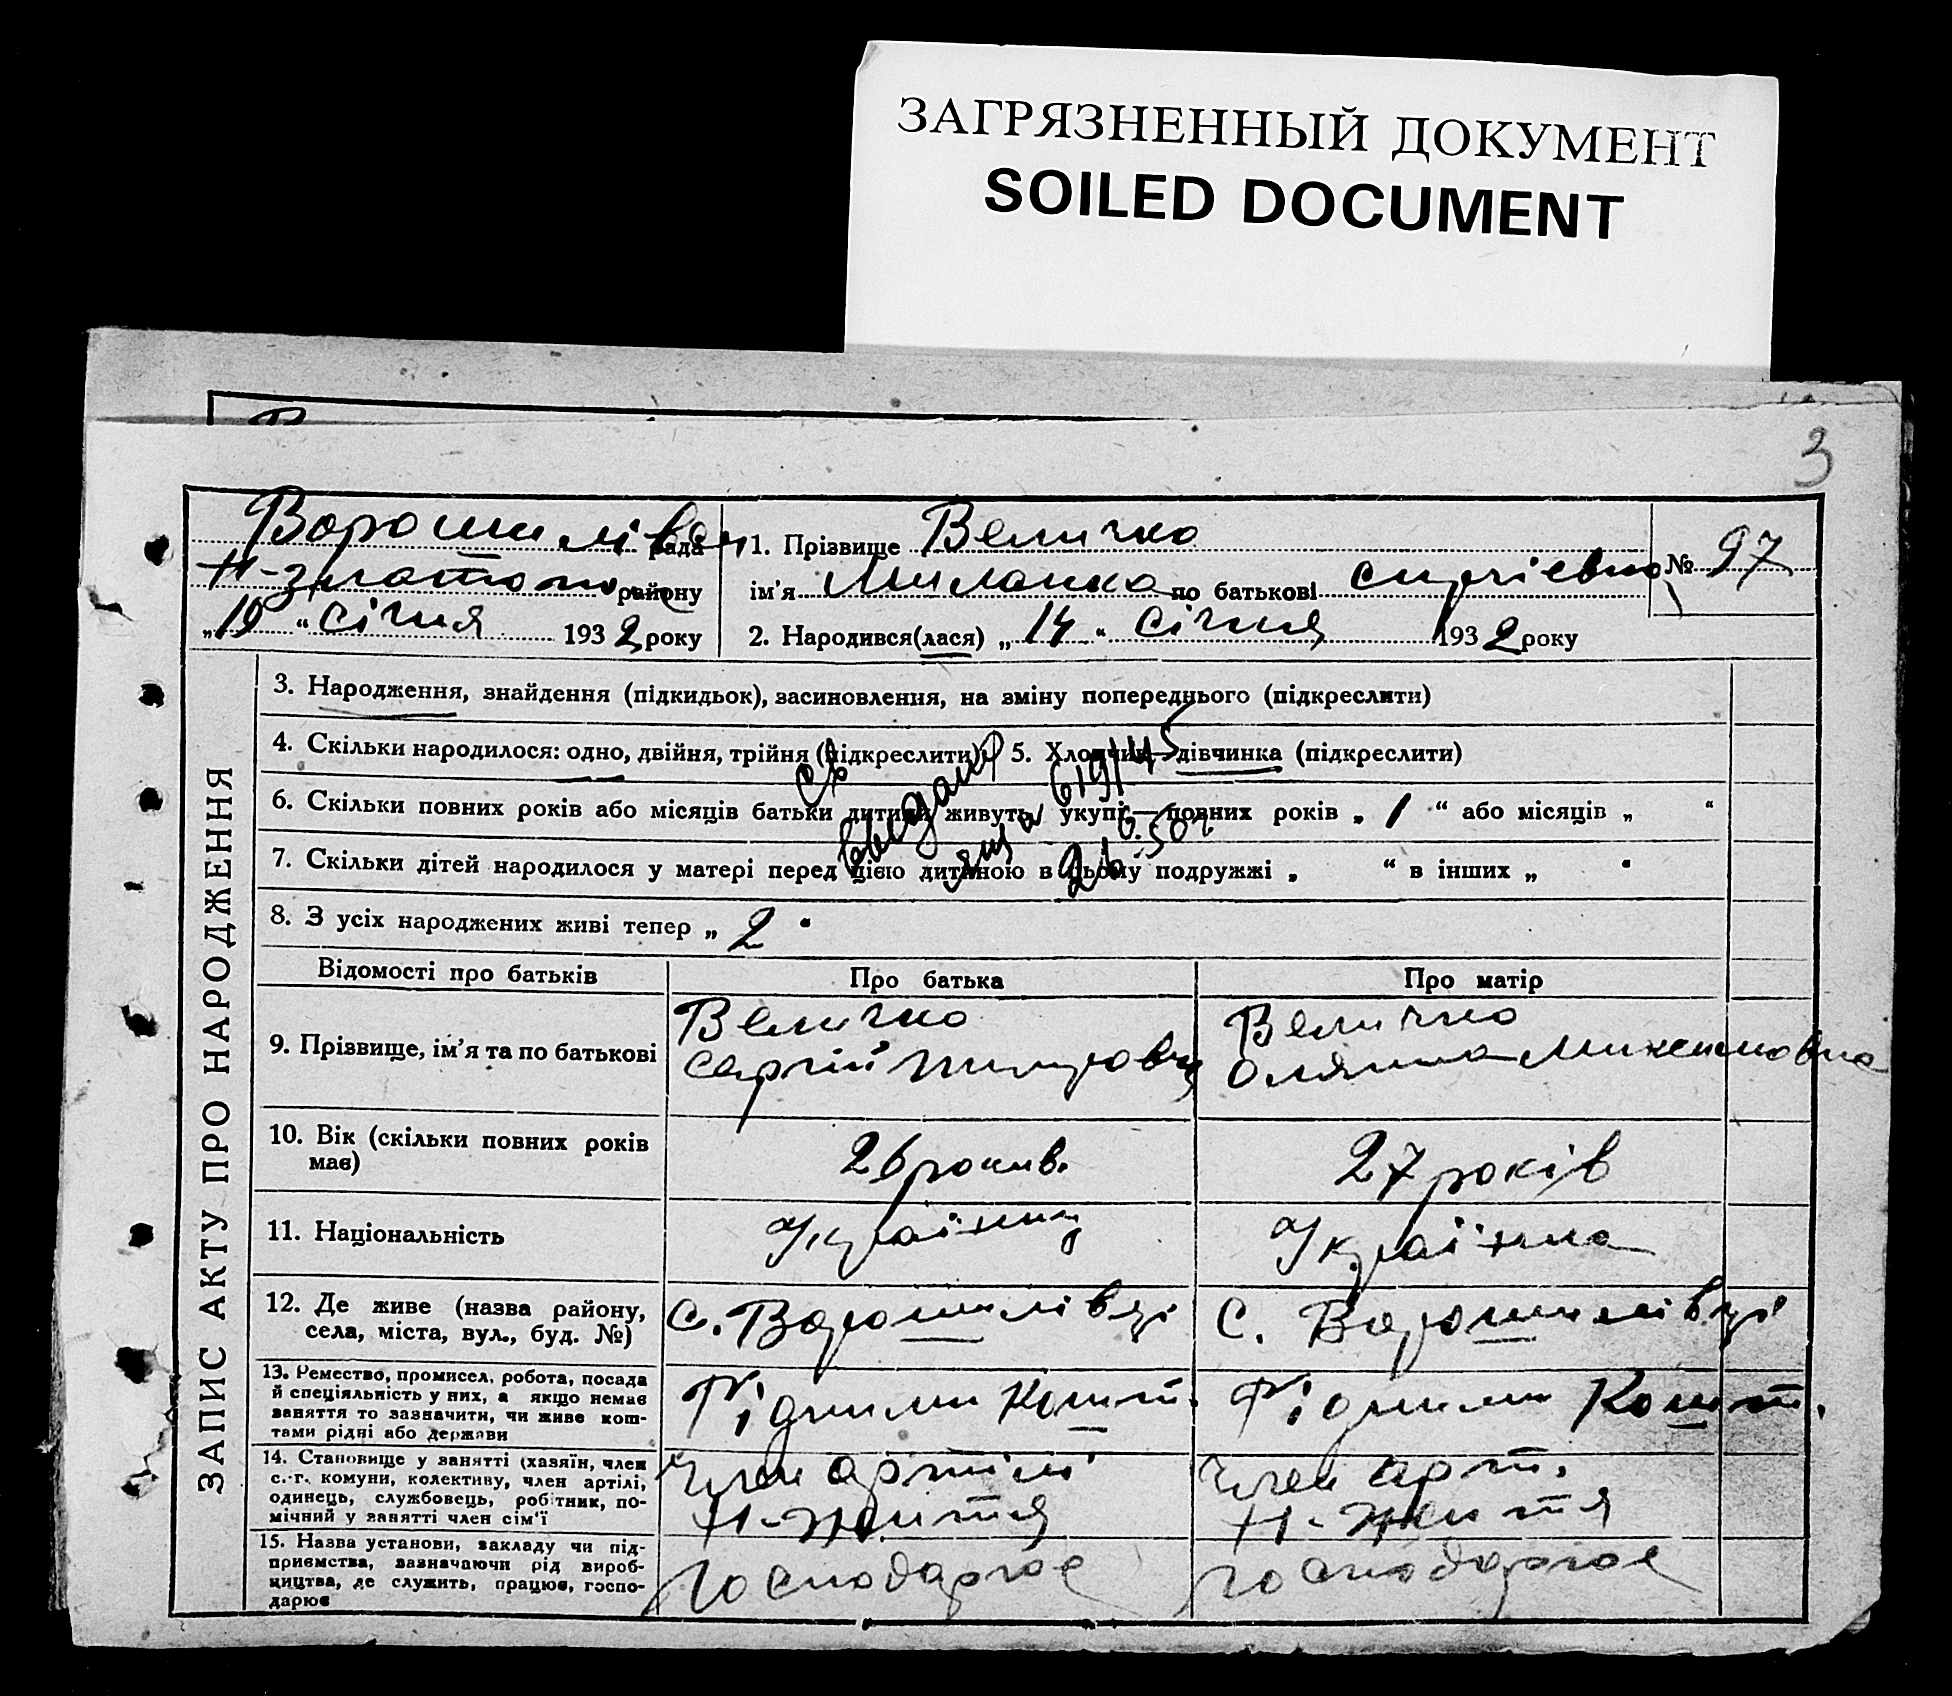 ЗАГРЯЗНЕННЫЙ ДОКУМЕНТ
SOILED DOCUMENT
3
ЗАПИС АКТУ ПРО НАРОДЖЕННЯ
Ворошилівсь рада
Н-златопо району
"19" січня 1932 року
1. Прізвище Величко
ім'я Миланка по батькові сиргіевна
№ 97
2. Народився(лася) „14" січня 1932 року
3. Народження, знайдення (підкидьок), засиновлення, на зміну попереднього (підкреслити)
4. Скільки народилося: одно, двійня, трійня (підкреслити) 5. Хлопчик—дівчинка (підкреслити)
6. Скільки повних років або місяців батьки дитини живуть укупі—повних років „ 1 “ або місяців „ “
7. Скільки дітей народилося у матері перед цією дитиною в цьому подружжі „ “ в інших „ “
8. З усіх народжених живі тепер „ 2 “
Св
619145
Відомості про батьків Про батька Про матір
9. Прізвище, ім'я та по батькові
Величко
Сергій
Величко
Оляна Максимовна
10. Вік (скільки повних років
має)
26 рокив.
27 років
11. Національність
Українец
Українка
12. Де живе (назва району,
села, міста, вул., буд. №)
с. Ворошилівці
С. Ворошилівці
13. Ремество, промисел, робота, посада
й спеціяльність у них, а якщо немає
заняття то зазначити, чи живе кош-
тами рідні або держави
Рідними Кошт.
Рідними Кошт.
14. Становище у занятті (хазяїн, член
с.-г. комуни, колективу, член артілі,
одинець, службовець, робітник, по-
мічний у занятті член сім'ї
Член артілі
Н-життя
Член арт.
Н-життя
15. Назва установи, закладу чи під-
приємства, зазначаючи рід вироб-
ництва, де служить, працює, госпо-
дарює
Господарює
Господарює